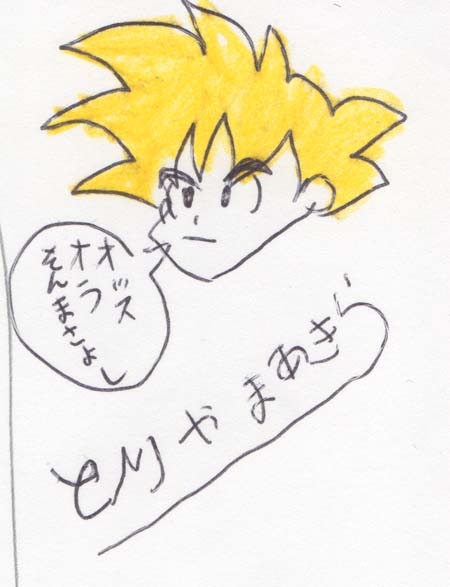 オッス
オラ
そんまさよし
とりやまあきら